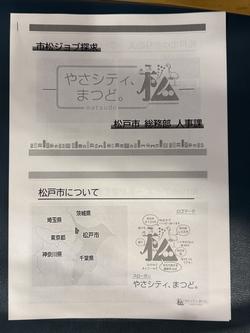 市松ジョブ探求
やさシティ、
まつど。
matsudo
松
松戸市 総務部 人事課
松戸市について
茨城県
埼玉県
松戸市
東京都
神奈川県
千葉県
ロゴマーク
松
スローガン
やさシティ、まつど。